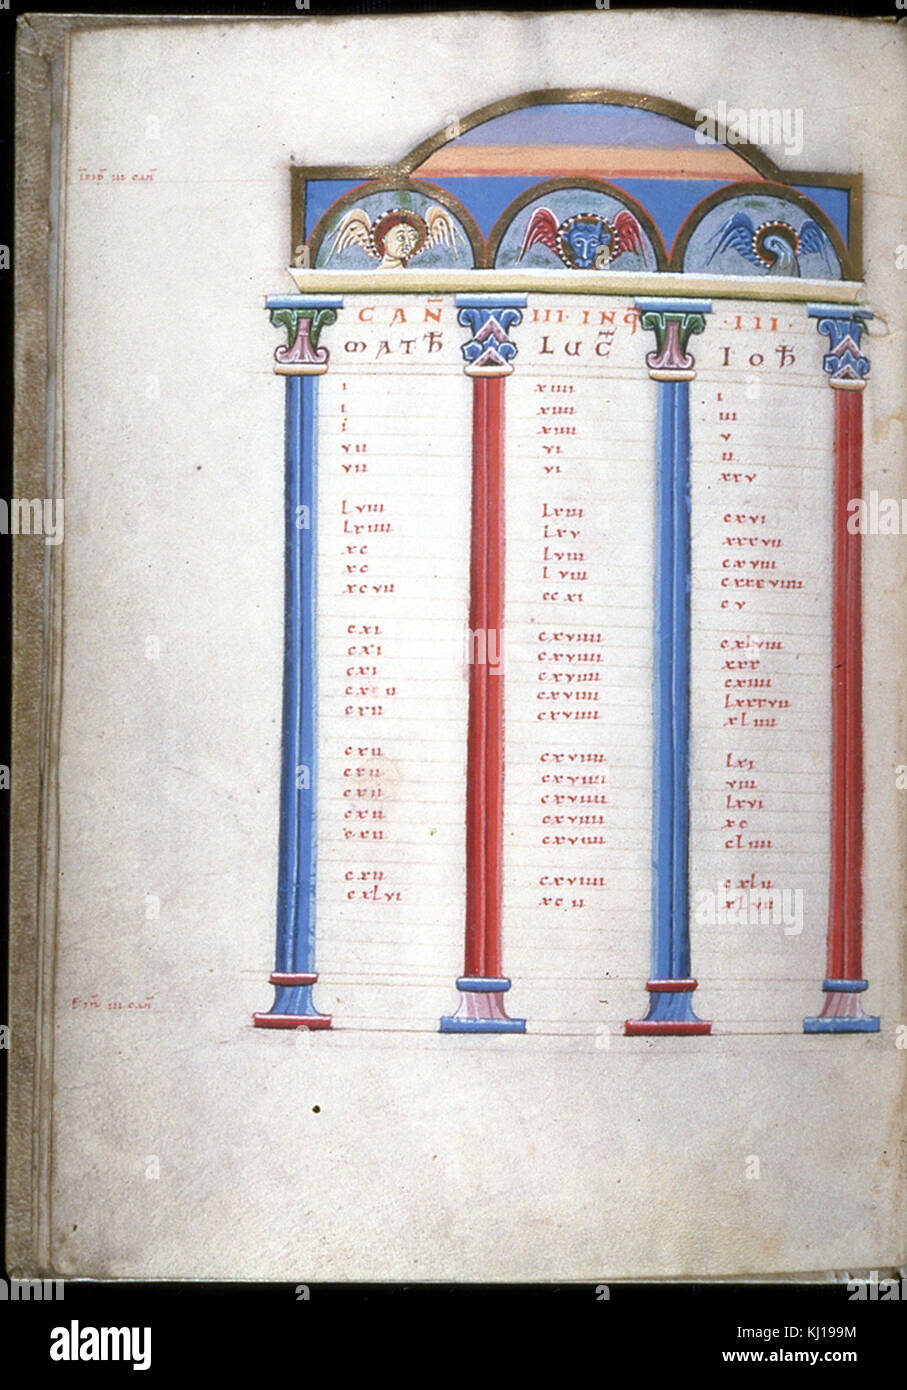 inc̄p̄ iii cān̄
CAN̄ III·INQ̄ ·III·
MATH̄ LUC̄ IOH̄
i xiiii i
i xiiii iii
i xiiii v
vii vi ii
vii vi xxv
Lviii Lxiii cxvi
Lxiiii Lxv xxxvii
xc Lviii cxviii
xc Lviii cxxxviiii
xcvii ccxi cv
cxi cxviiii cxLviii
cxi cxviiii xxx
cxi cxviiii cxiiii
cxviiii Lxxxvii
cxii cxviiii xLiiii
cxii cxviiii Lxi
cxii cxviiii viii
cxii cxviiii Lxvi
cxii cxviiii xc
cxii cxviiii cLiiii
cxii cxviiii cxLii
cxLvi xcii xLvii
Fin̄ iii cān̄
alamy
Image ID: KJ199M
www.alamy.com